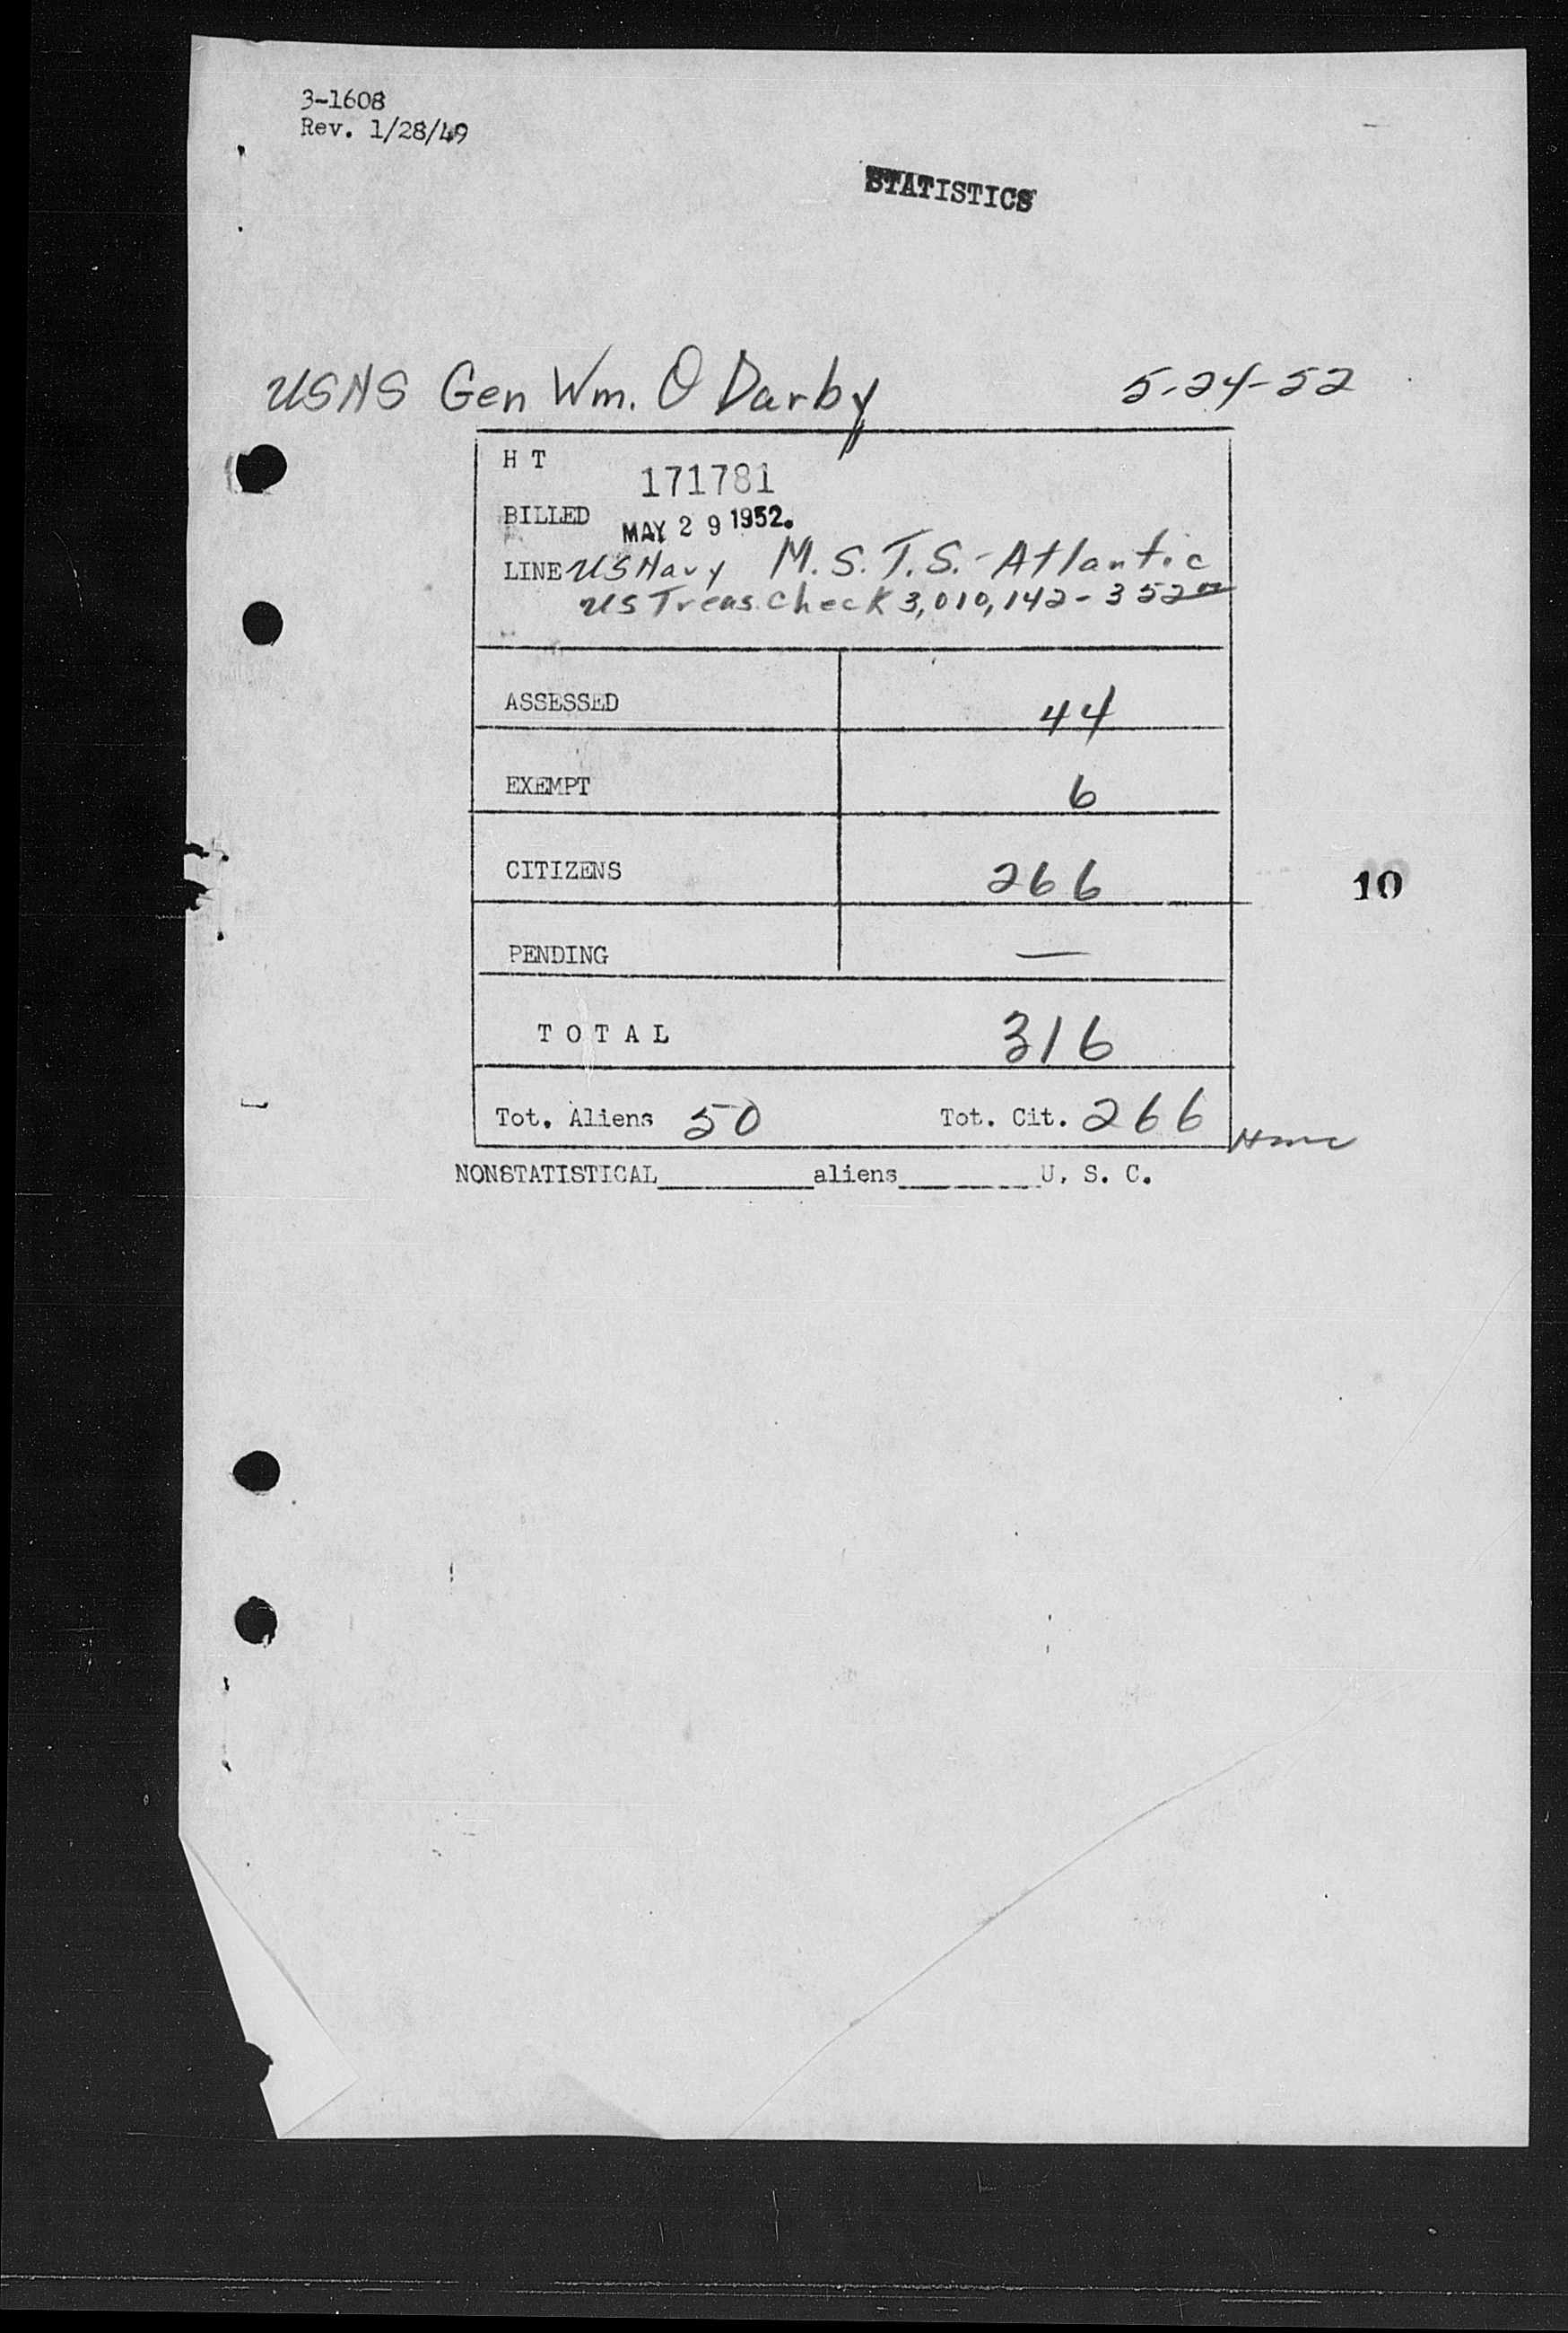 3-1608
Rev. 1/28/49
STATISTICS
USNS Gen Wm. O Darby 5-24-52
H T
171781
BILLED MAY 29 1952.
LINE US Navy M.S.T.S.-Atlantic
US Treas. Check 3,010,142-352
ASSESSED 44
EXEMPT 6
CITIZENS 266
10
PENDING —
TOTAL 316
Tot. Aliens 50 Tot. Cit. 266
NONSTATISTICAL__________aliens__________U. S. C.